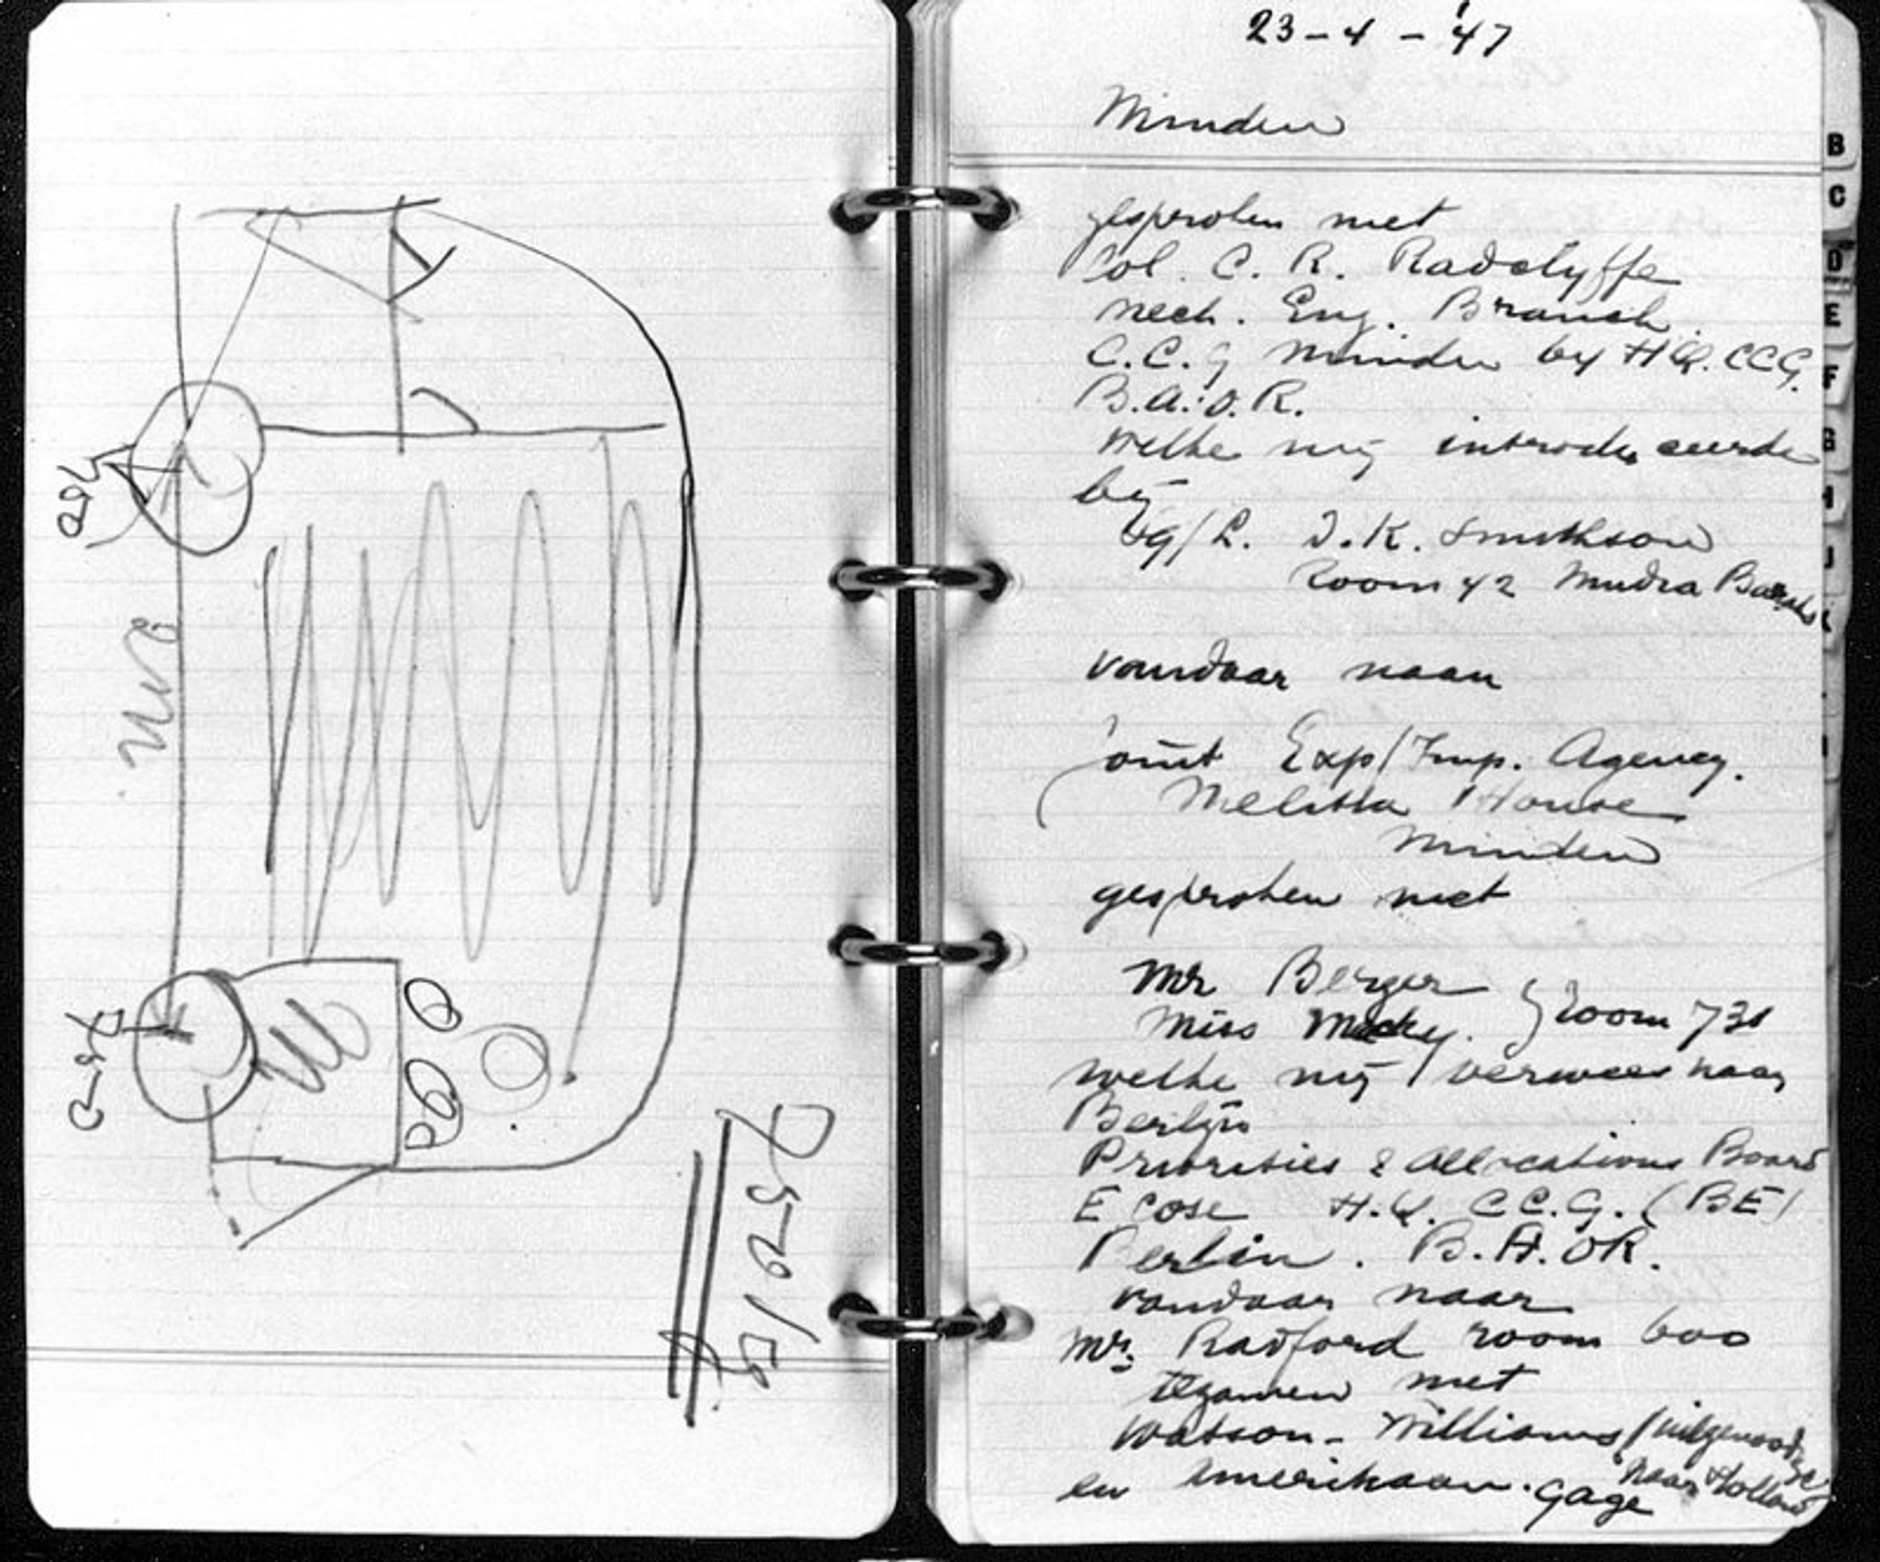 23-4-'47
Minden
gesproken met
Col. C. R. Radclyffe
mech. Eng. Branch.
C.C.G Minden by H.Q. CCG.
B.A.O.R.
welke mij introduceerde
bij
J.K. Smithson
Room 42 Mudra Barracks
vandaar naar
Joint Exp/Imp. Agency.
Melitta House
Minden
gesproken met
Mr Berger
Miss Macky. } room 731
welke mij verwees naar
Berlijn
Priorities & Allocations Board
E Cose H.Q. CC.G. (BE)
Berlin. B.A.OR.
vandaar naar
Mr. Radford room 600
tezamen met
Watson-Williams (uitgenoodigd
naar Holland
en Amerikaan. Gage
B
C
D
E
F
G
H
J
K